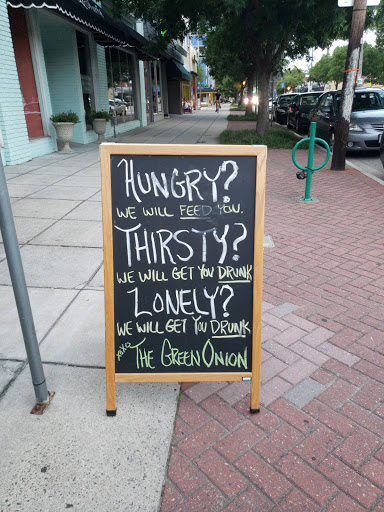 HUNGRY?
WE WILL FEED YOU.
THIRSTY?
WE WILL GET YOU DRUNK
LONELY?
WE WILL GET YOU DRUNK
xoxo THE GREEN ONION